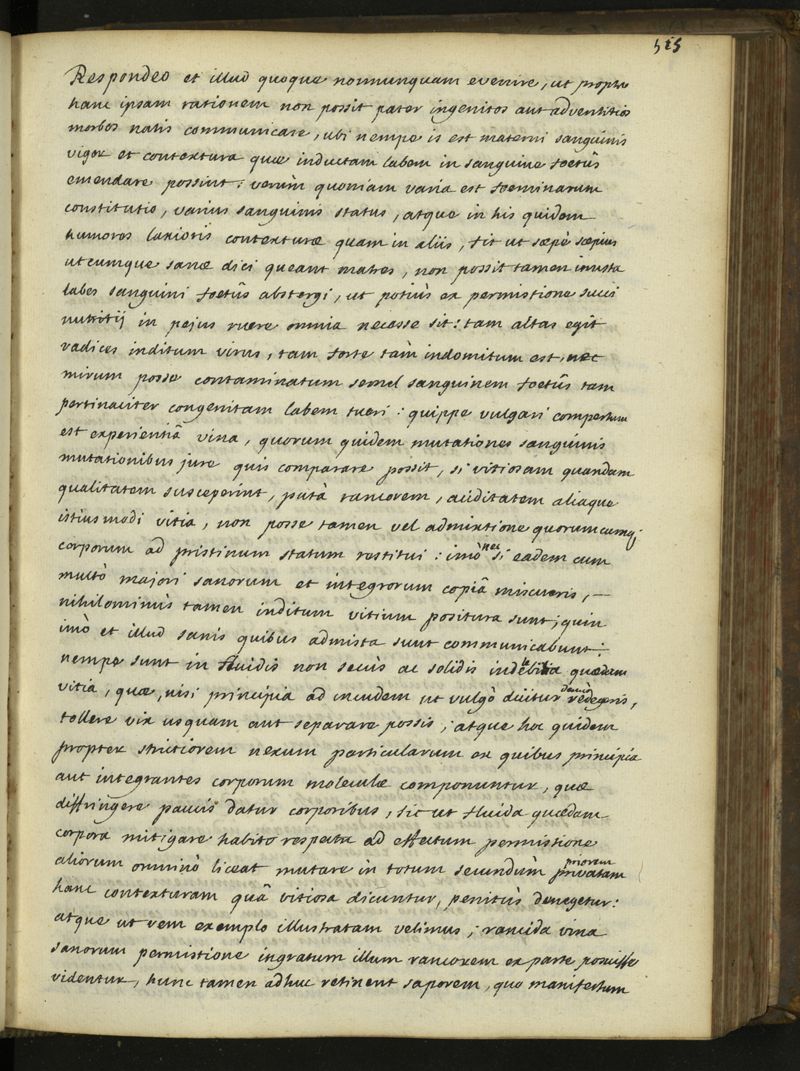 515
Respondeo et illud quoque nonnunquam evenire, ut propter
hanc ipsam rationem non possit pater ingenitos aut adventitios
morbos natis communicare, ubi nempe is est materni sanguinis
vigor et contextura quæ inductam labem in sanguine foetûs
emendare possint: verùm quoniam varia est foeminarum
constitutio, varius sanguinis status, atque in his quidem
humores laxioris contexturæ quam in aliis, fit ut sæpè sæpius
utcumque sanæ dici queant matres, non possit tamen inusta
labes sanguini foetûs abstergi, ut potiùs ex permistione succi
nutritij in pejus ruere omnia necesse sit: tam altas egit
radices inditum virus, tam forte tàm indomitum est, nec
mirum posse contaminatum semel sanguinem foetûs tam
pertinaciter congenitam labem tueri: quippe vulgari compertum
est experientiâ vina, quorum quidem mutationes sanguinis
mutationibus jure quis comparare possit, si vitiosam quandam
qualitatem susceperint, putà rancorem, aciditatem aliaque
istiusmodi vitia, non posse tamen vel admixtione quorumcumq;
corporum ad pristinum statum restitui: imò nec si eadem cum
multò majori sanorum et integrorum copiâ miscueris, —
nihilominùs tamen inditum vitium positura sunt; quin
imò et illud sanis quibus admista sunt communicabunt:
nempe sunt in fluidis non secùs ac solidis indebita quædam
vitia, quæ, nisi principia ad incudem ut vulgò dicitur denuo redegeris,
tollere vix usquam aut separare possis; atque hoc quidem
propter strictiorem nexum particularum ex quibus principia
aut integrantes corporum moleculæ componuntur, quæ
diffringere paucis datur corporibus, sic ut fluida quædam
corpora mitigare habito respectu ad effectum permistione
aliorum omninò liceat mutare in totum secundùm privatam priorem
hanc contexturam quâ vitiosa dicuntur, penitùs denegetur:
atque ut rem exemplo illustratam velimus; rancida vina
sanorum permistione ingratum illum rancorem ex parte posuisse
videntur, hunc tamen adhuc retinent saporem, quo manifestum